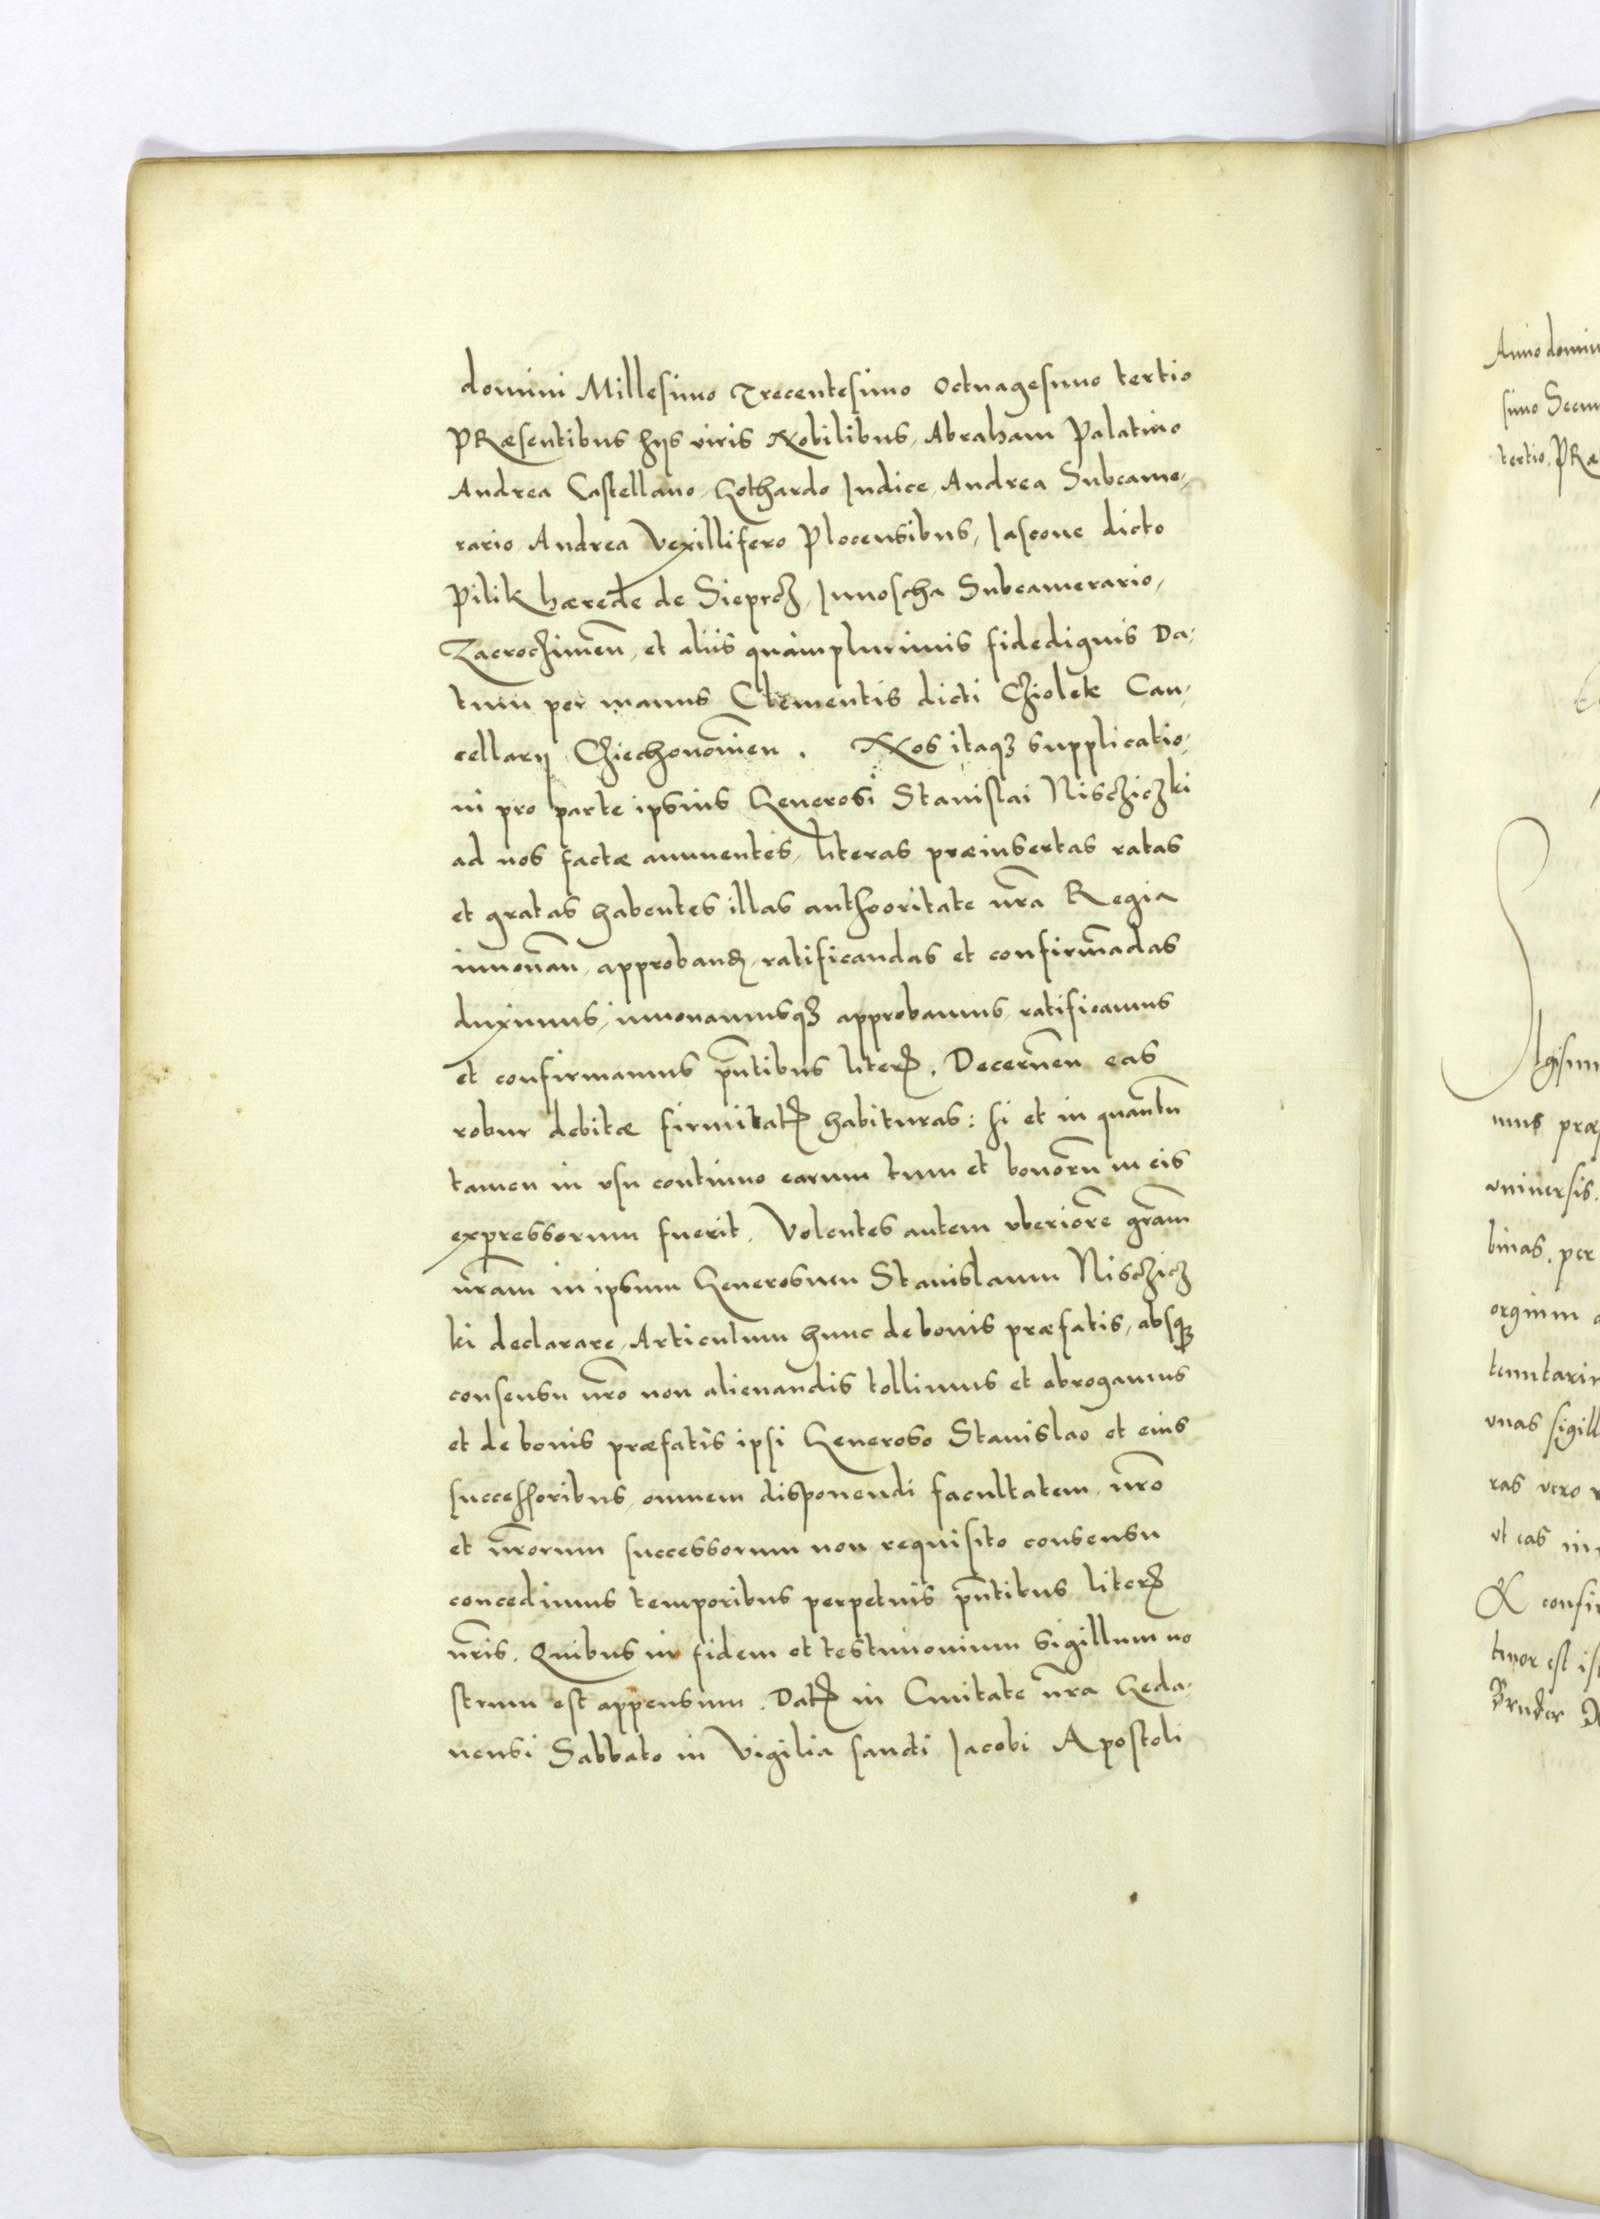 domini Millesimo Trecentesimo Octuagesimo tertio
PRæsentibus hijs viris Nobilibus, Abraham Palatino
Andrea Castellano, Gothardo Iudice, Andrea Subcame-
rario, Andrea Vexillifero Plocensibus, Iascone dicto
Pilik hærede de Sieprcz, Iunoscha Subcamerario,
Zacrochimen̄, et aliis quàmplurimis fidedignis Da-
tum per manus Clementis dicti Cziolek Can-
cellarij Cziechonouien̄. Nos itaqꝫ supplicatio-
ni pro parte ipsius Generosi Stanislai Niscziczki
ad nos factæ annuentes, literas præinsertas ratas
et gratas habentes illas authooritate nr̄a Regia
innouan̄, approbandꝭ, ratificandas et confirmādas
duximus, innouamusqꝫ approbamus, ratificamus
et confirmamus pn̄tibus literꝭ. Decernen̄ eas
robur debitæ firmitatꝭ habituras: si et in quantū
tamen in vsu continuo earum tum et bonorū in eis
expressorum fuerit. Volentes autem vberiorē grām
nr̄am in ipsum Generosum Stanislaum Nisczicz
ki declarare, Articulum hunc de bonis præfatis, absqꝫ
consensu nr̄o non alienandis tollimus et abrogamus
et de bonis præfatis ipsi Generoso Stanislao et eius
successoribus, omnem disponendi facultatem, nr̄o
et nr̄orum successorum non requisito consensu
concedimus temporibus perpetuis pn̄tibus literꝭ
nr̄is. Quibus in fidem et testimonium sigillum no
strum est appensum. Datꝭ in Ciuitate nr̄a Geda-
nensi Sabbato in Vigilia sancti Iacobi Apostoli
Anno domin
simo Secun
tertio, PRæ
igismu
mus præ
vniuersis.
binas, per
orginm
tenutariu
vnas sigill
ras vero
vt eas in
Et confir
tenor est is
Bruder